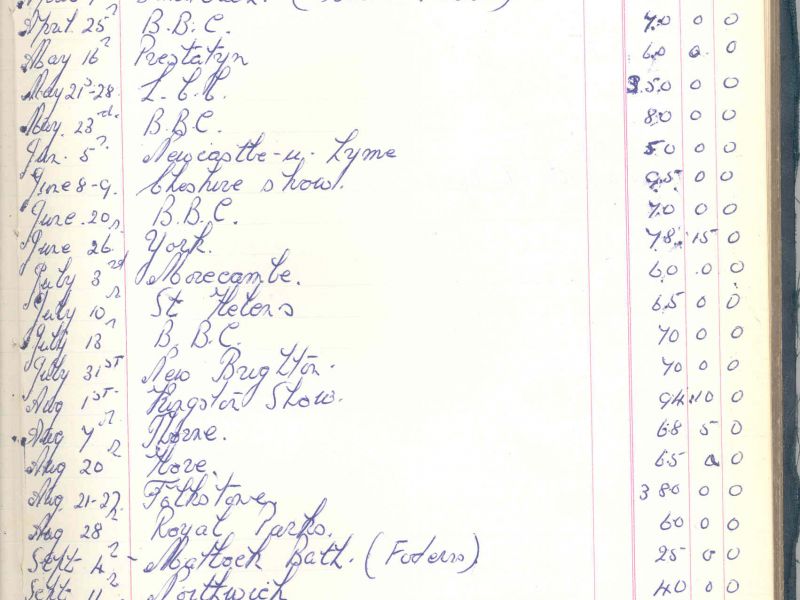 April 25th B.B.C. 70 0 0
May 16th Prestatyn 60 0 0
May 21st-28. L.C.C. 350 0 0
May. 23rd. B.B.C. 80 0 0
Jun. 5th. Newcastle-u-Lyme 50 0 0
June 8-9. Cheshire show. 95 0 0
June. 20th. B.B.C. 70 0 0
June 26. York. 78 15 0
July 3rd Morecambe. 60 0 0
July 10th St Helens 65 0 0
July 18th B.B.C. 70 0 0
July 31st New Brighton. 70 0 0
Aug 1st. Kingston Show. 94 10 0
Aug 7th Thorne. 68 5 0
Aug 20th Hove. 65 0 0
Aug. 21-27. Folkstone 380 0 0
Aug 28th Royal Parks. 60 0 0
Sept 4th - Matlock Bath. (Fodens) 25 0 0
Sept 11th Northwich 40 0 0